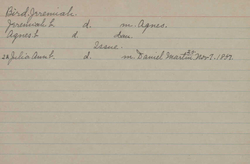 Bird, Jeremiah
Jeremiah b. d. m. Agnes.
Agnes b d dau.
Issue.
Julia Ann b. d. m Daniel Martin Nov 7. 1847.